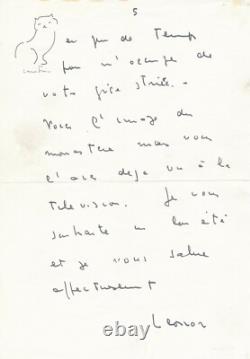 5
un peu de temps
pour m'occupe de
votre
Voici l'image du
monastere mais vous
l'avez deja vu à la
television. Je vous
souhaite un bon été
et je vous salue
affectueusement
Leonor
© 123RF